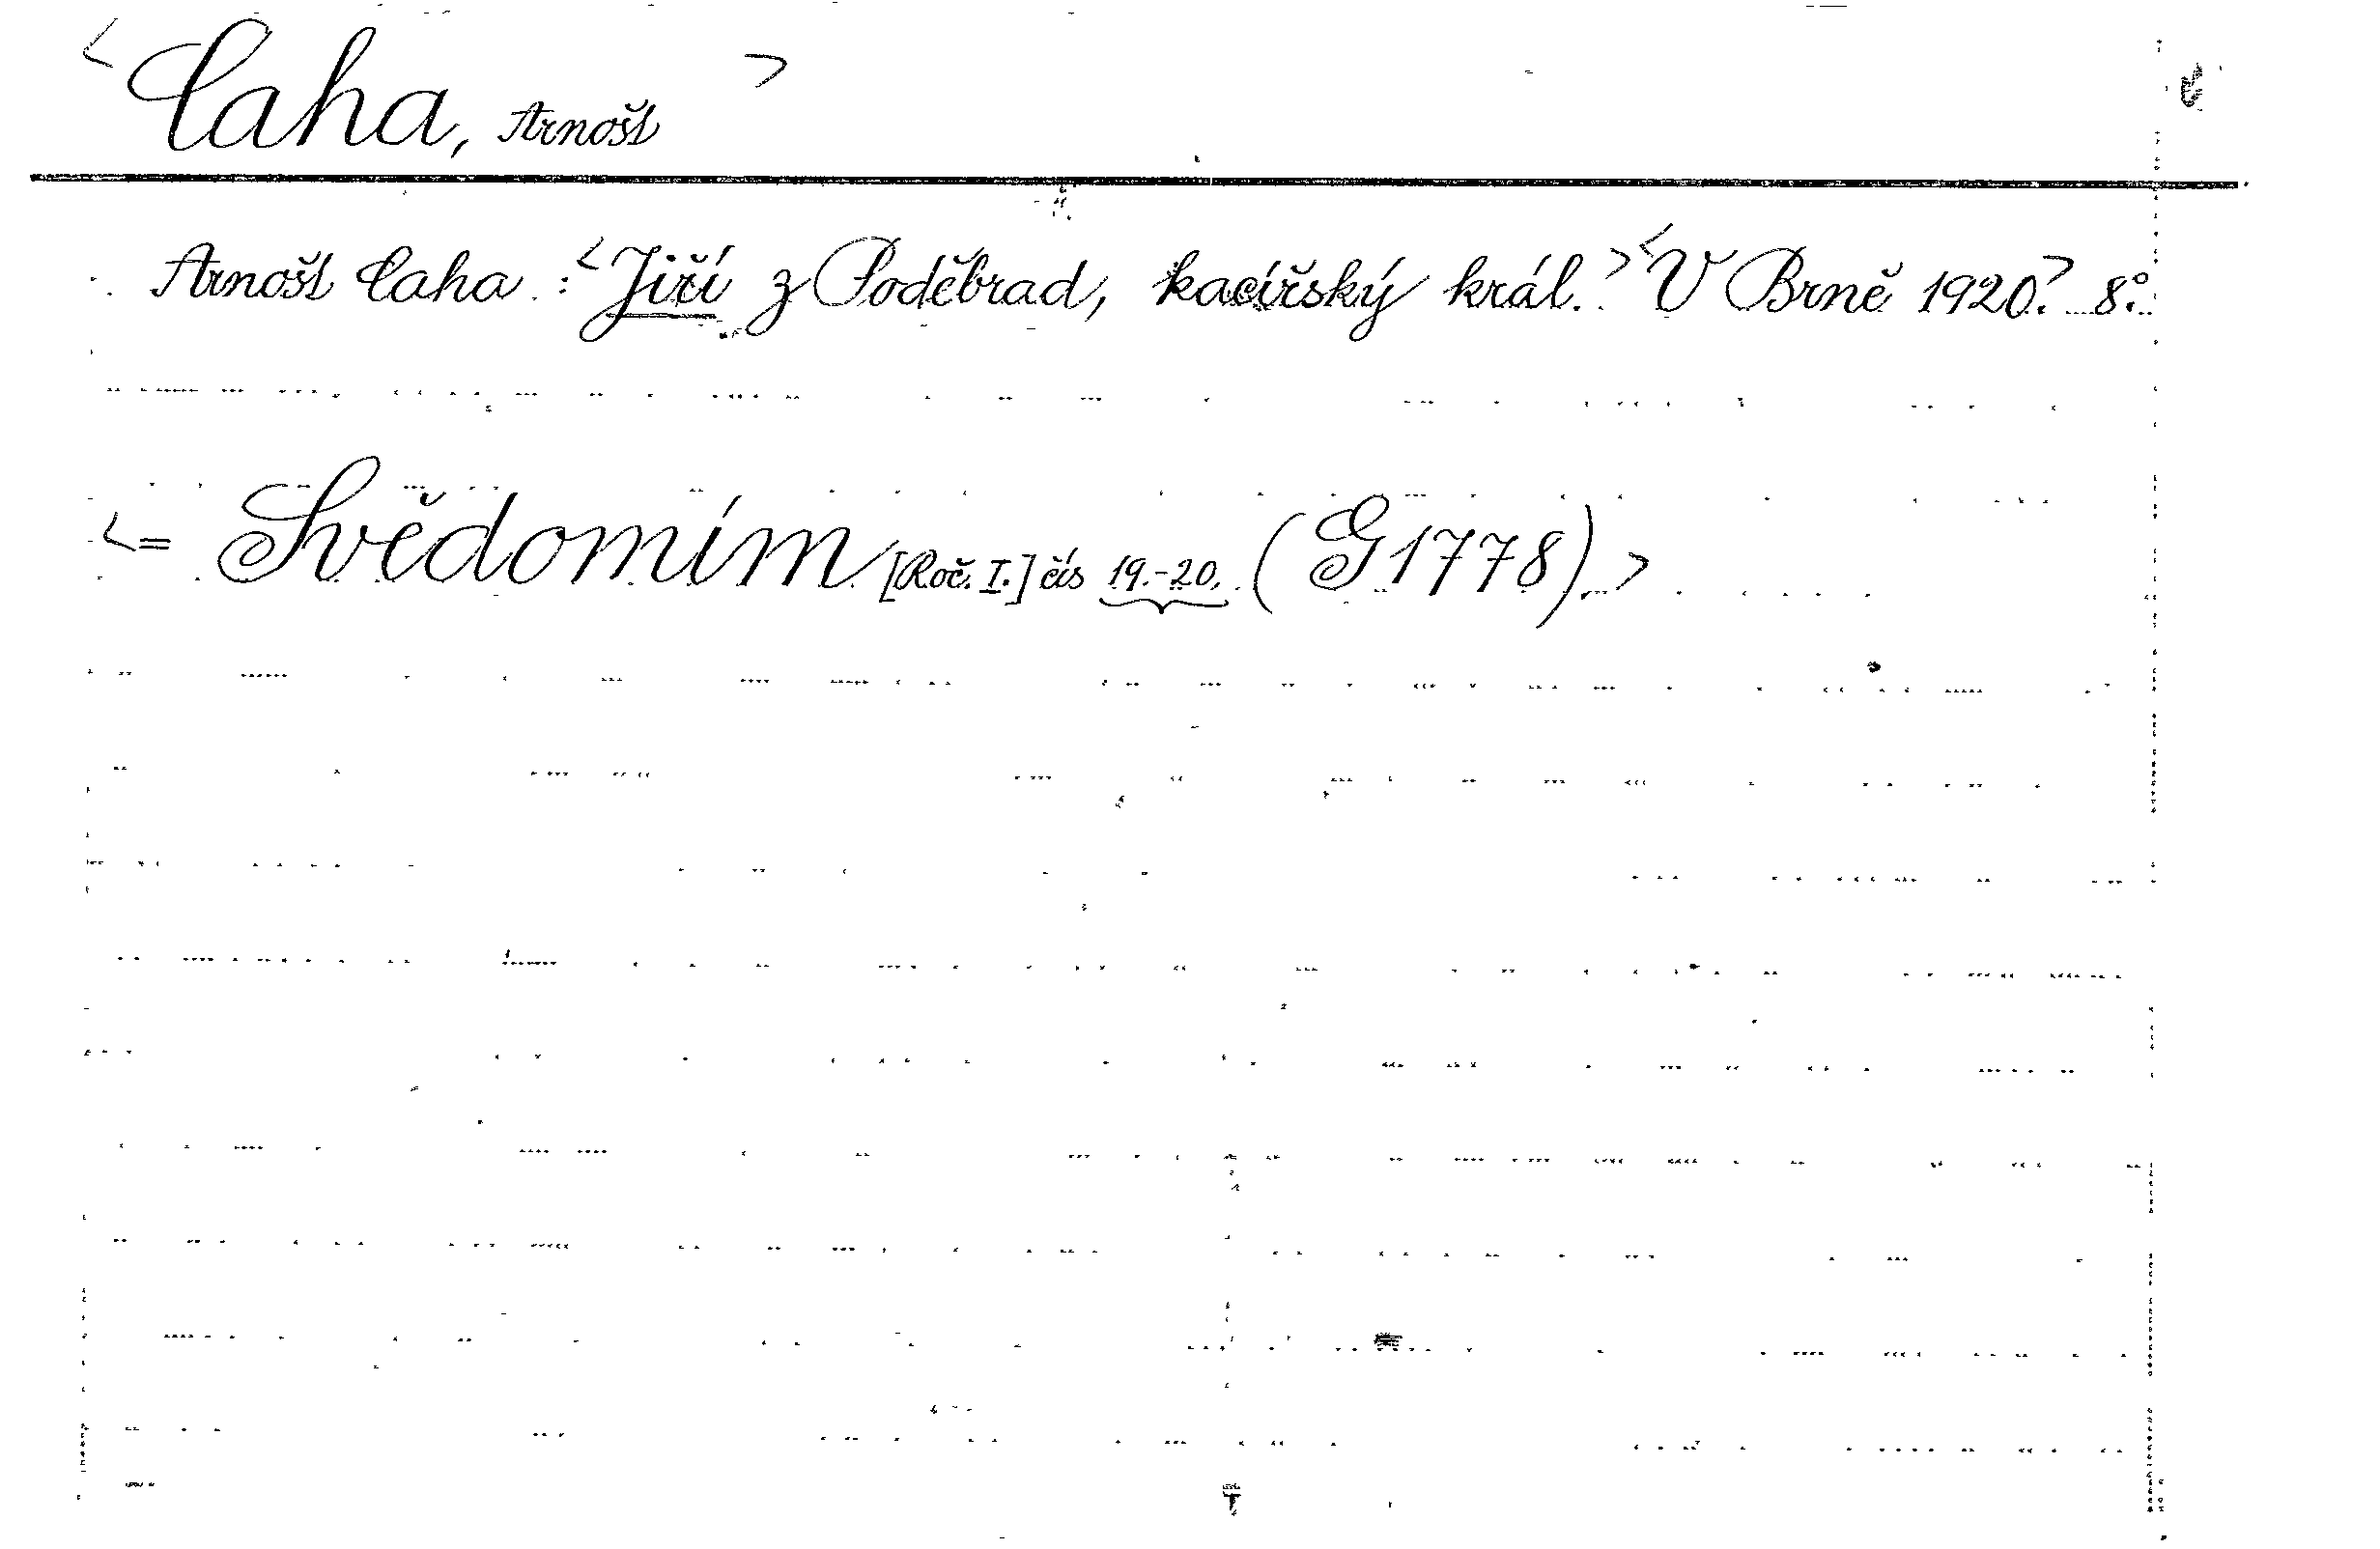 <Caha, Arnošt>
Arnošt Caha : <Jiří z Poděbrad, kacířský král.> <V Brně 1920.> 8°.
<= Svědomím [Roč. I.] čís 19.-20. (G 1778).>